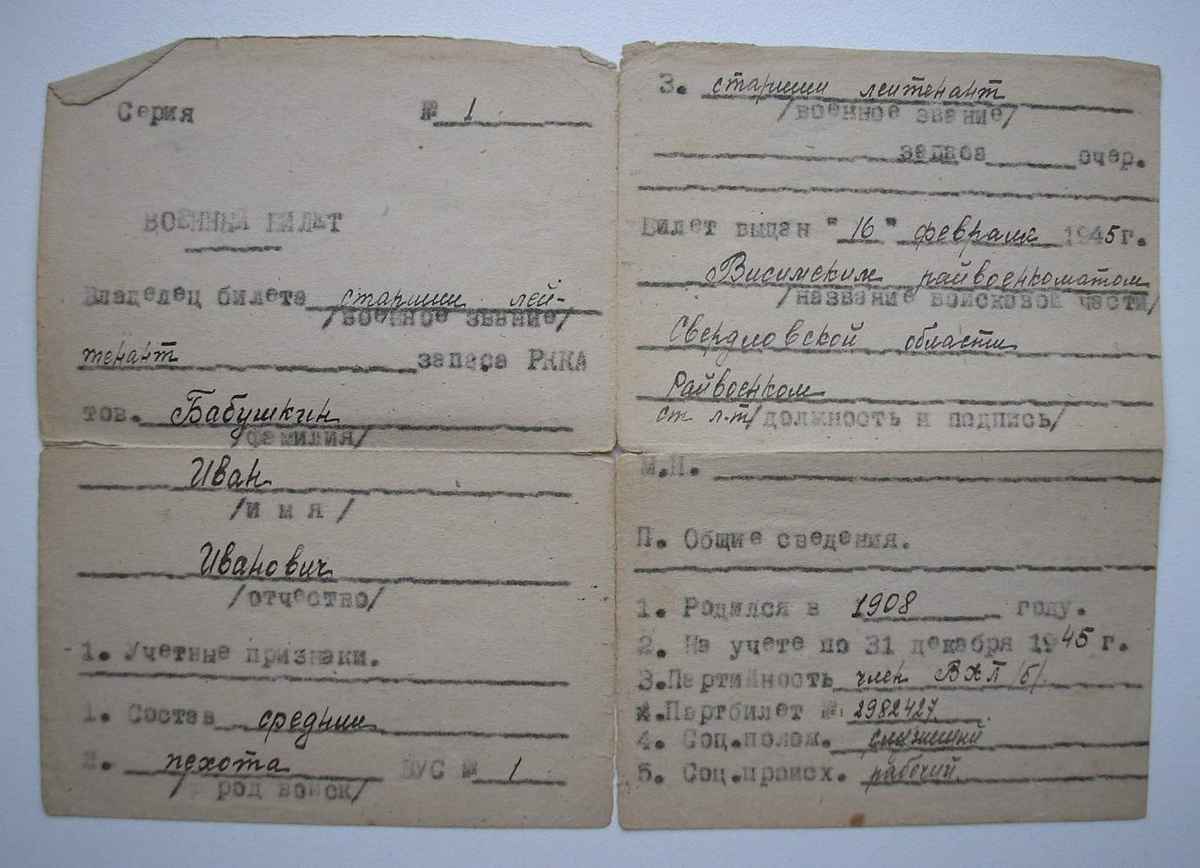 Серия № 1
ВОЕННЫЙ БИЛЕТ
Владелец билета старший лей-
/военное звание/
тенант запаса РККА
тов. Бабушкин
/фамилия/
Иван
/имя/
Иванович
/отчество/
1. Учетные признаки.
1. Состав средний
2. пехота ВУС № 1
/род войск/
3. старший лейтенант
/военное звание/
запаса очер.
Билет выдан "16" февраля 1945 г.
Висимским райвоенкоматом
/название войсковой части/
Свердловской области
Райвоенком
ст л-т /должность и подпись/
М.П.
П. Общие сведения.
1. Родился в 1908 году.
2. На учете по 31 декабря 1945 г.
3. Партийность член ВКП/б/.
4. Партбилет № 2982427
4. Соц.полож. служащий
5. Соц.происх. рабочий